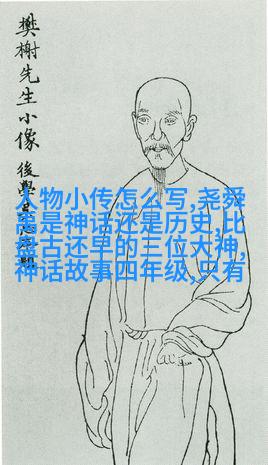 樊榭先生小像
後學
人物小传怎么写,尧舜
禹是神话还是历史,比
盘古还早的三位大神,
神话故事四年级,只有